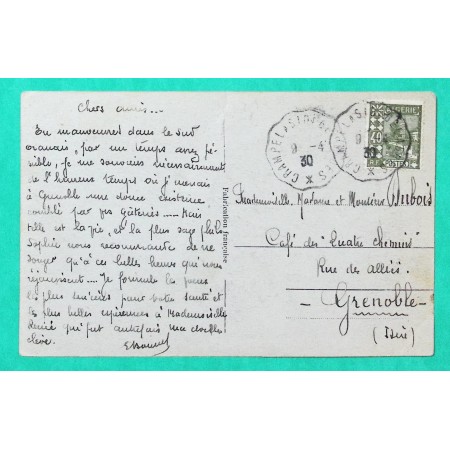 Chers amis...
En manoeuvres dans le sud
oranais, par un temps assez pé-
nible, je me souviens nécessairement
de l'heureux temps où je menais
à Grenoble une douce existence
comblé par vos gâteries..... Mais
telle est la vie, et la plus sage philo-
sophie nous recommande de ne
songer qu'à ces belles heures qui nous
réjouissent.... Je formule les voeux
les plus sincères pour votre santé et
les plus belles espérances à Mademoiselle
qui fut autrefois ma
élève.
Fabrication française
CRAMPEL A
9 -4
30
ALGERIE
POSTES
Mademoiselle, Madame et Monsieur Dubois
Café des Quatre Chemins
Rue des Alliés
- Grenoble -
(Isère)